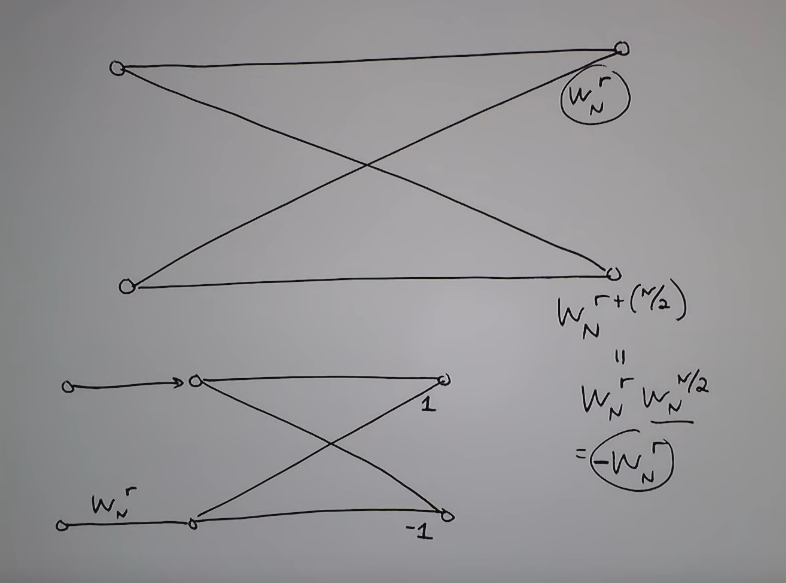 W_N^r
W_N^{r+(N/2)}
=
W_N^r W_N^{N/2}
= -W_N^r
1
W_N^r
-1